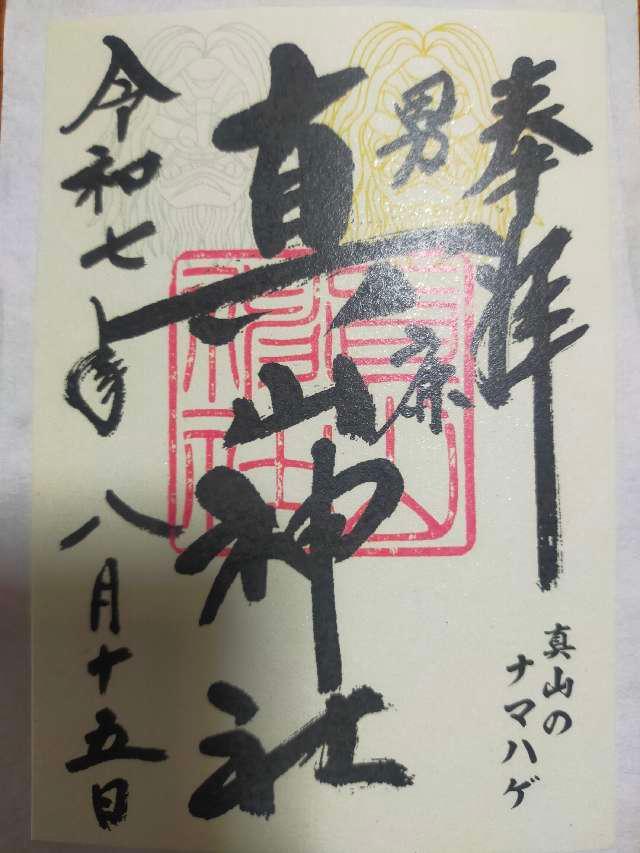 奉拝
真山の
ナマハゲ
男鹿
真山神社
令和七年八月十五日